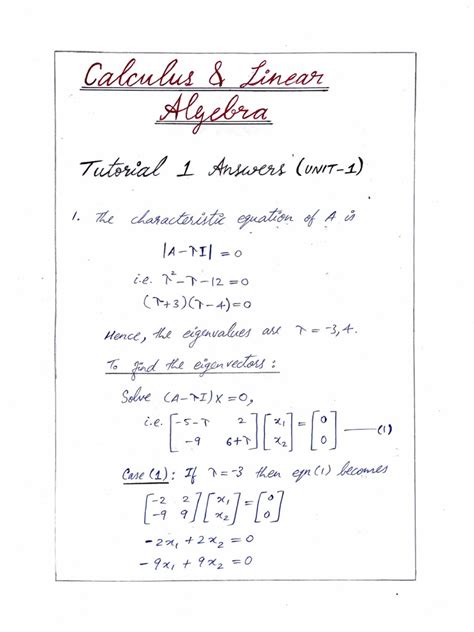 Calculus & Linear
Algebra
Tutorial 1 Answers (UNIT-1)
1. The characteristic equation of A is
|A-λI| = 0
i.e. λ²-λ-12 = 0
(λ+3)(λ-4) = 0
Hence, the eigenvalues are λ = -3, 4.
To find the eigenvectors:
Solve (A-λI)X = 0,
i.e. [-5-λ 2] [x₁] = [0]
[-9 6+λ] [x₂] [0] —(1)
Case (1): If λ=-3 then eqn (1) becomes
[-2 2] [x₁] = [0]
[-9 9] [x₂] [0]
-2x₁ + 2x₂ = 0
-9x₁ + 9x₂ = 0